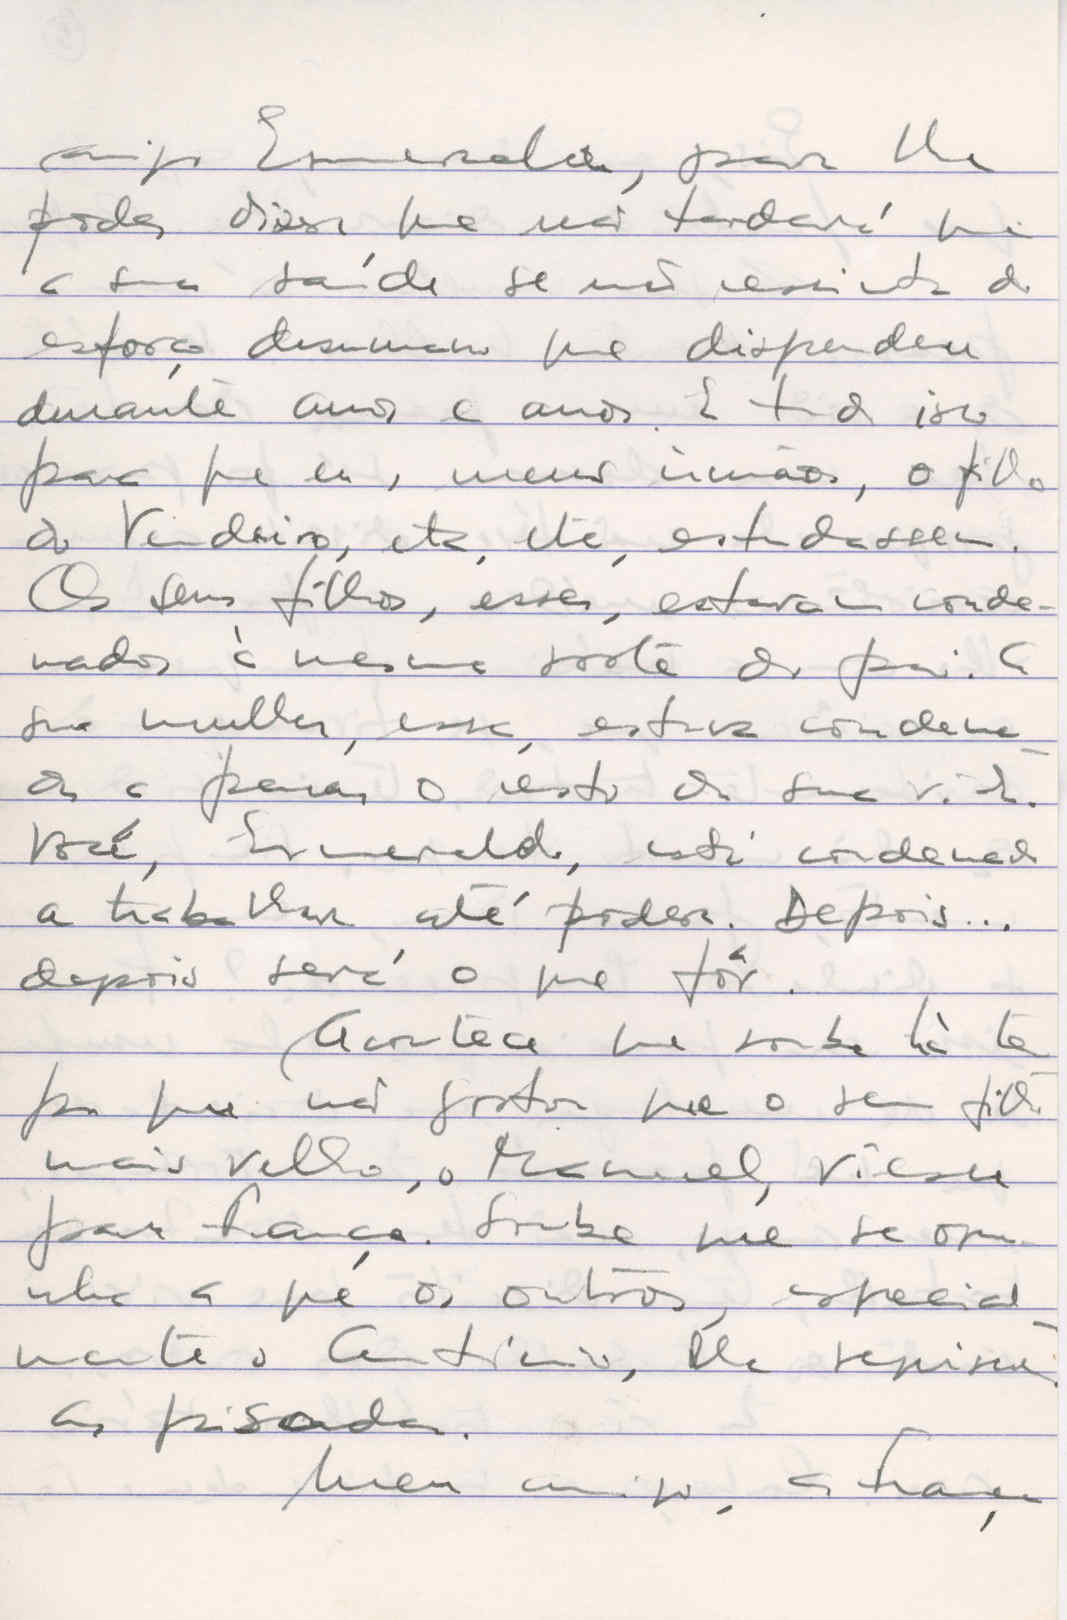 amigo Esmeraldo, para lhe
poder dizer que não tardará que
a sua saúde se não ressinta do
esforço desumano que dispendeu
durante anos e anos. E tudo isso
para que eu, meus irmãos, o filho
do Vendeiro, etc, etc, estudassem.
Os seus filhos, esses, estavam conde-
nados à mesma sorte do pai. A
sua mulher, essa, estava condena
da a penar o resto da sua vida.
Você, Esmeraldo, está condenado
a trabalhar até poder. Depois...
depois será o que fôr.
Acontece que soube há tem
po que não gostou que o seu filho
mais velho, o Manuel, viesse
para França. Soube que se opu
nha a que os outros, especial
mente o António, lhe seguissem
as pisadas.
Meu amigo, a França